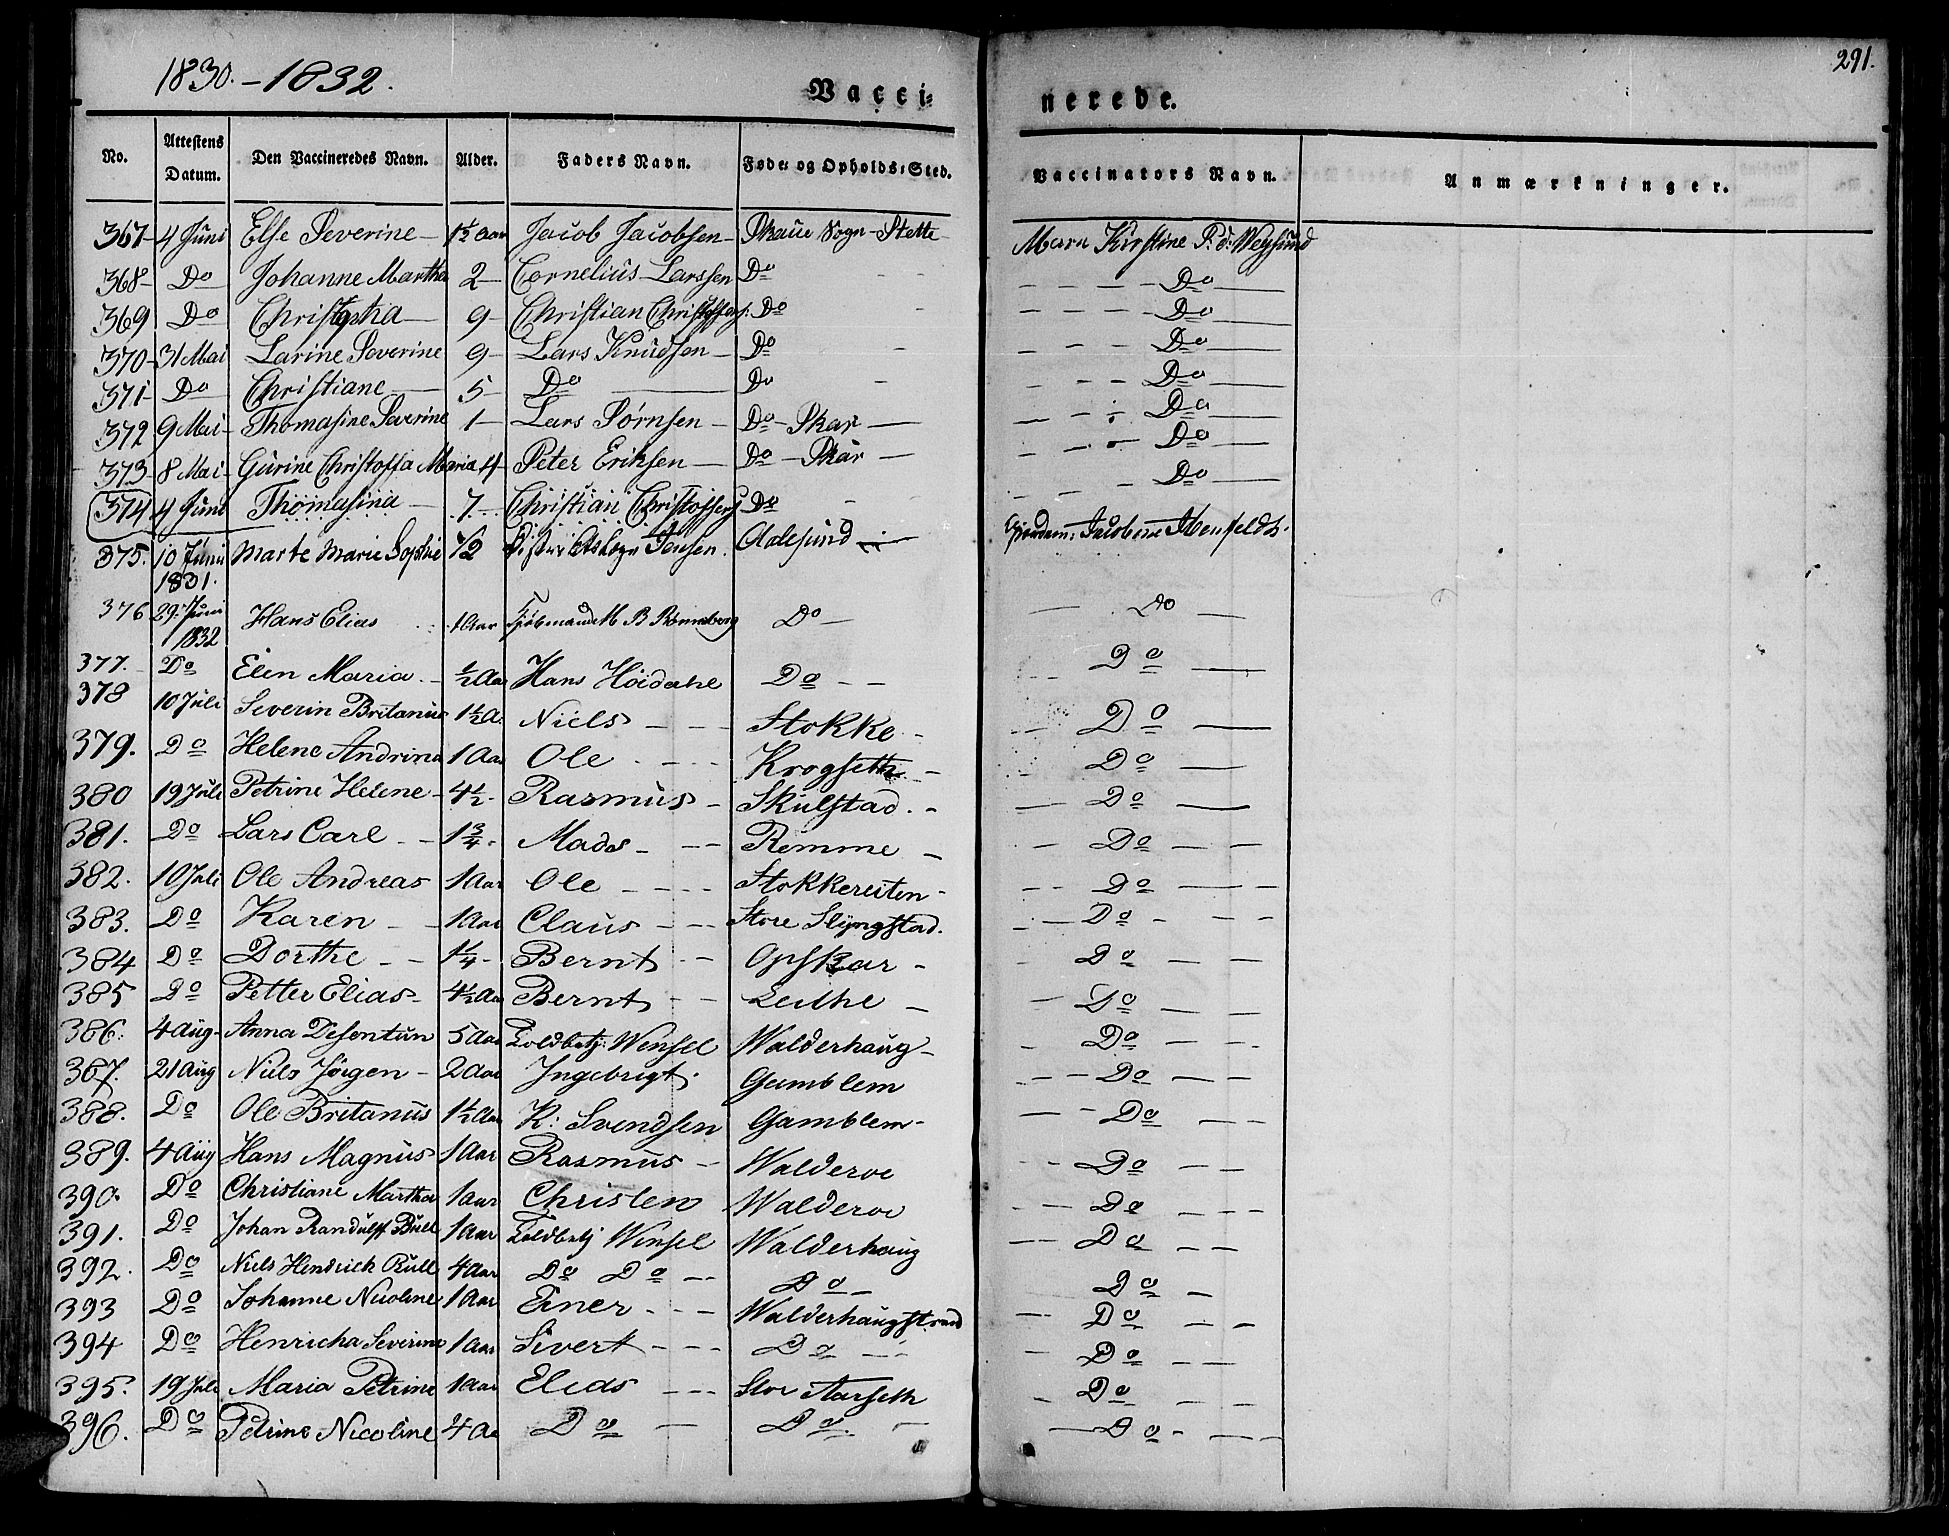 1830.-1832.
291.
Vacci=
nerede.
No. Attestens Datum. Den Vaccineredes Navn. Alder. Faders Navn. Føde= og Opholds=Sted. Vaccinators Navn. Anmærkninger.
367- 4 Juni Else Severine - 1½ Aar Jacob Jacobsen - Skaue Sogn - Stette Maren Kirstine P. d: Wegsund
368- Do Johanne Martha 2- Cornelius Larssen Do - - - - - - Do
369 Do Christopha 9- Christian Christoffers: Do - - - - - Do
370- 31 Mai Larine Severine 9- Lars Knudsen - Do - - - - Do
371- Do Christiane 5 Do Do - - - - Do
372 9 Mai- Thomasine Severine 1- Lars Sørnsen - Do - Skar - - - - Do
373- 8 Mai- Gurine Christoffa Maria 4 Peter Eriksen - Do - Skar - - - - Do
374 4 Juni Thomasina - 7- Christian Christoffers Do - - - - Do
375. 10 Juni 1831. Marte Marie Sophie ½ Jensen. Aalesund Jacobine
376 29. Juni 1832 Hans Elias 1 Aar Kjøbmand M B Rønneberg Do - - Do -
377. Do Elen Maria - ½ Aa Hans Hoidahl Do - - Do -
378 10 Juli Severin Britanus 1½ A. Niels - - - Stokke - - - Do -
379. Do Helene Andrina 1 Aar Ole - - - Krogseth - - Do -
380 19 Juli Petrine Helene - 4½- Rasmus - Skulstad. - - Do -
381. Do Lars Carl - - 1¾- Mads - - - Remme - - Do - -
382. 10 Juli Ole Andreas 1 Aar Ole - - - - Stokkereiten - - - Do - -
383. Do Karen - - 1 Aar Claus - - - Store Slyngstad. - - Do - - -
384 Do Dorthe - - 1¼- Bernt - - Opskar - - Do - - -
385 Do Petter Elias - 4½ Aa Bernt - - Leithe - - Do - - -
386. 4 Aug- Anna Desentun 5 Aar Toldbetj: Wensel Walderhaug - - Do - - -
387. 21 Aug Niels Jørgen - 2 Aar Ingebrigt. Gamblem - - - Do - -
388. Do Ole Britanus 1½ Aar K: Svendsen Gamblem - - - Do - - -
389. 4 Aug Hans Magnus 1 Aar Rasmus - Walderoe - - Do - -
390. Do Christiane Martha 1 Aar Christen Walderoe - - Do - - -
391. Do Johan Randulff Bull 1 Aar Toldbetj Wensel Walderhaug - - Do - -
392. Do Niels Hendrich Bull 4 Aar Do Do - - Do - Do -
393 Do Johanne Nicoline 1 Aar Einer - - - Walderhaugstrand - - Do - -
394 Do Henricha Severine 1 Aar Sivert - - - Do - - - Do - -
395. 19 Juli Maria Petrine 1 Aar Elias - - - Stor Aarseth - Do - -
396. Do Petrine Nicoline 4 Aa Do - Do - - Do - - - -